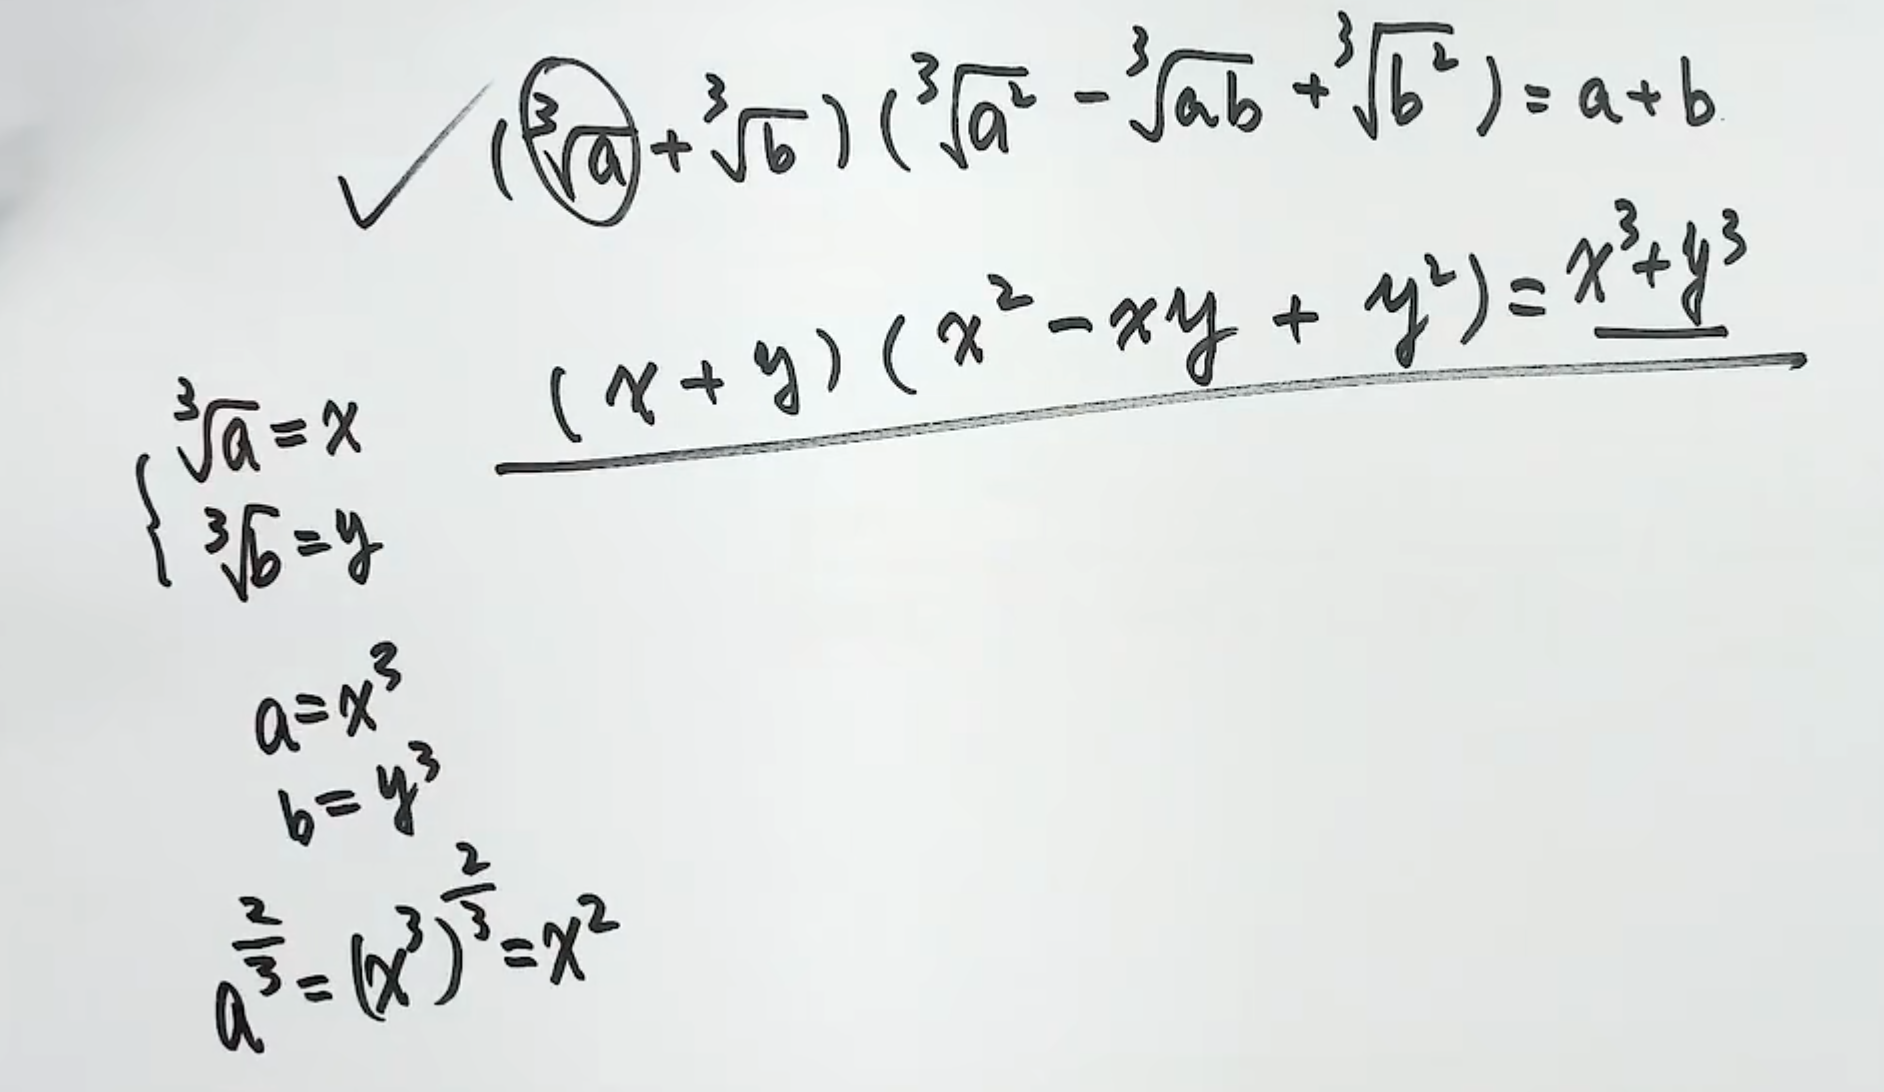 ✓ (∛a + ∛b)(∛a² - ∛ab + ∛b²) = a + b
(x + y)(x² - xy + y²) = x³ + y³
{ ∛a = x
∛b = y
a = x³
b = y³
a^(2/3) = (x³)^(2/3) = x²